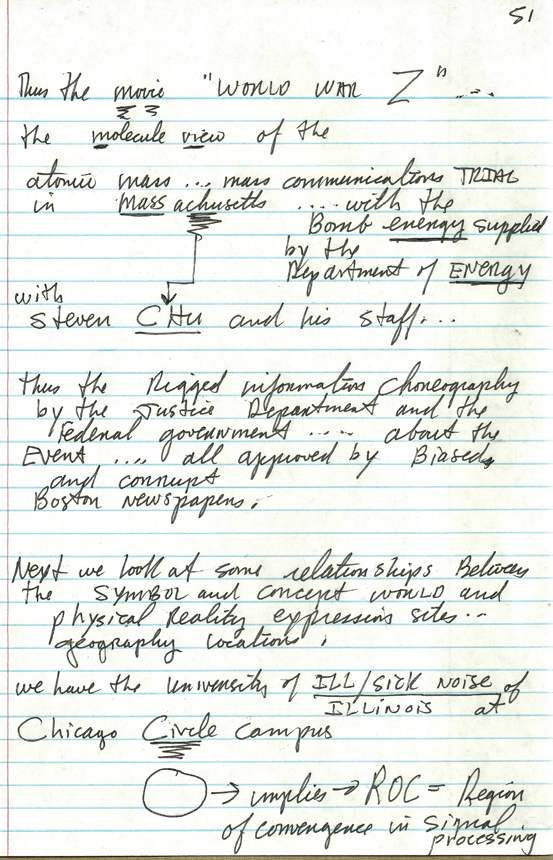 51
Thus the movie "WORLD WAR Z" ....
the molecule view of the
atomic mass ... mass communications TRIAL
in MASSachusetts .... with the
Bomb energy supplied
by the
Department of ENERGY
with
Steven CHu and his staff...
thus the Rigged information Choreography
by the Justice Department and the
Federal government ..... about the
Event .... all approved by Biased,
and corrupt
Boston Newspapers.
Next we look at some relationships Between
the SYMBOL and concept WORLD and
physical Reality expression sites...
geography locations.
we have the University of ILL/SICK NOISE of
ILLINOIS at
Chicago Circle campus
→ implies → ROC = Region
of convergence in Signal
processing